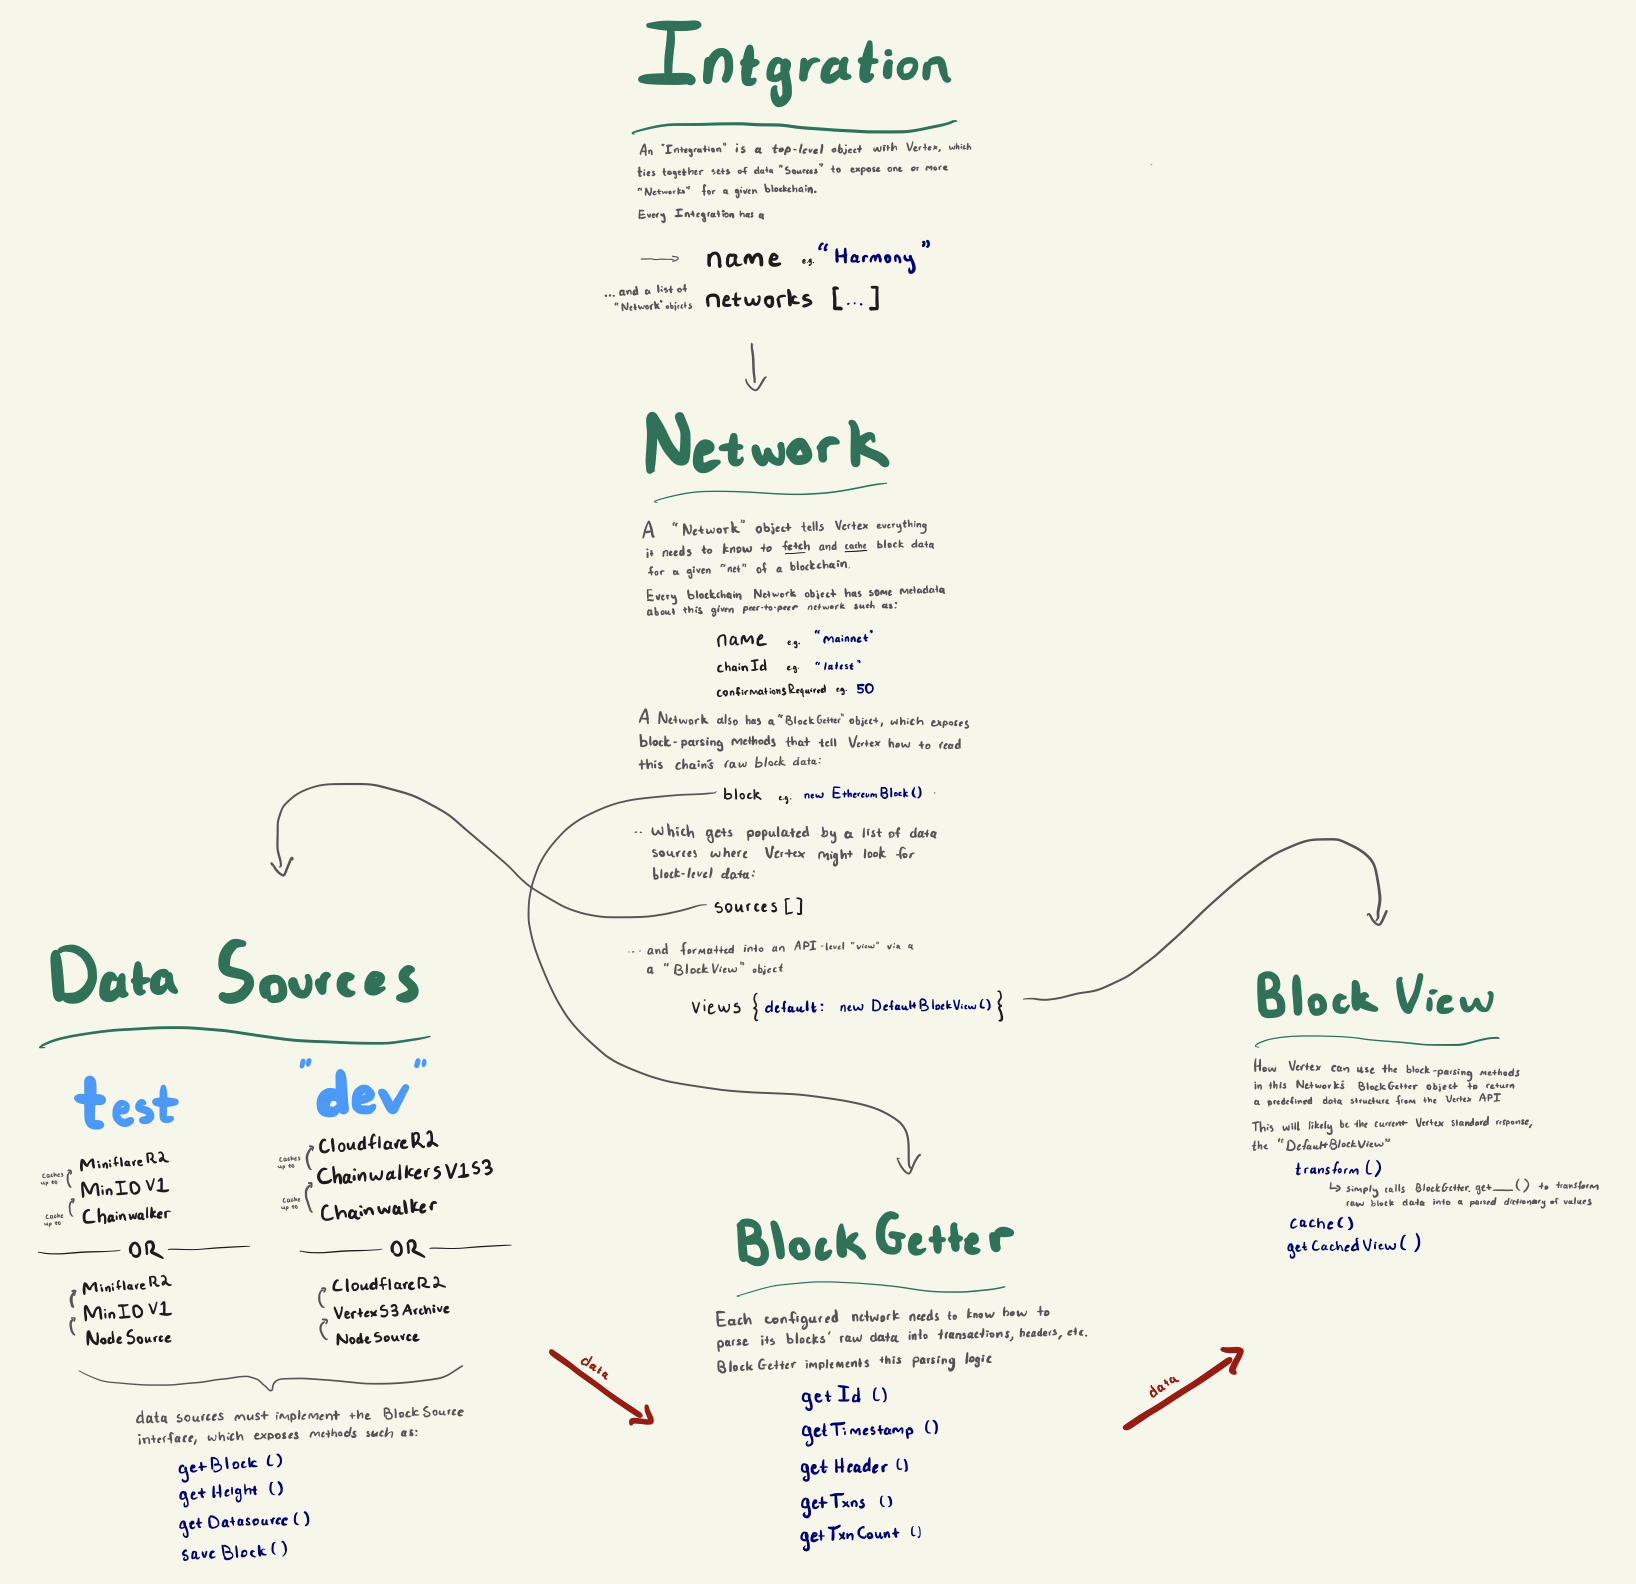 Intgration
An "Integration" is a top-level object with Vertex, which
ties together sets of data "Sources" to expose one or more
"Networks" for a given blockchain.
Every Integration has a
name e.g. "Harmony"
...and a list of
"Network" objects
networks [...]
Network
A "Network" object tells Vertex everything
it needs to know to fetch and cache block data
for a given "net" of a blockchain.
Every blockchain Network object has some metadata
about this given peer-to-peer network such as:
name e.g. "mainnet"
chainId e.g. "latest"
confirmationsRequired eg. 50
A Network also has a "BlockGetter" object, which exposes
block-parsing methods that tell Vertex how to read
this chain's raw block data:
block e.g. new EthereumBlock()
.. which gets populated by a list of data
sources where Vertex might look for
block-level data:
sources []
... and formatted into an API-level "view" via a
a "BlockView" object
views { default: new DefaultBlockView() }
Data Sources
test
Caches
up to
MiniflareR2
MinIO V1
Cache
up to
Chainwalker
OR
MiniflareR2
MinIO V1
NodeSource
"dev"
Caches
up to
CloudflareR2
ChainwalkersV1S3
Cache
up to
Chainwalker
OR
CloudflareR2
VertexS3Archive
NodeSource
data sources must implement the BlockSource
interface, which exposes methods such as:
getBlock ()
getHeight ()
getDatasource ()
saveBlock ()
data
Block Getter
Each configured network needs to know how to
parse its blocks' raw data into transactions, headers, etc.
BlockGetter implements this parsing logic
getId ()
getTimestamp ()
getHeader ()
getTxns ()
getTxnCount ()
data
Block View
How Vertex can use the block-parsing methods
in this Network's BlockGetter object to return
a predefined data structure from the Vertex API
This will likely be the current Vertex standard response,
the "DefaultBlockView"
transform ()
↳ simply calls BlockGetter.get___() to transform
raw block data into a parsed dictionary of values
cache ()
getCachedView ()